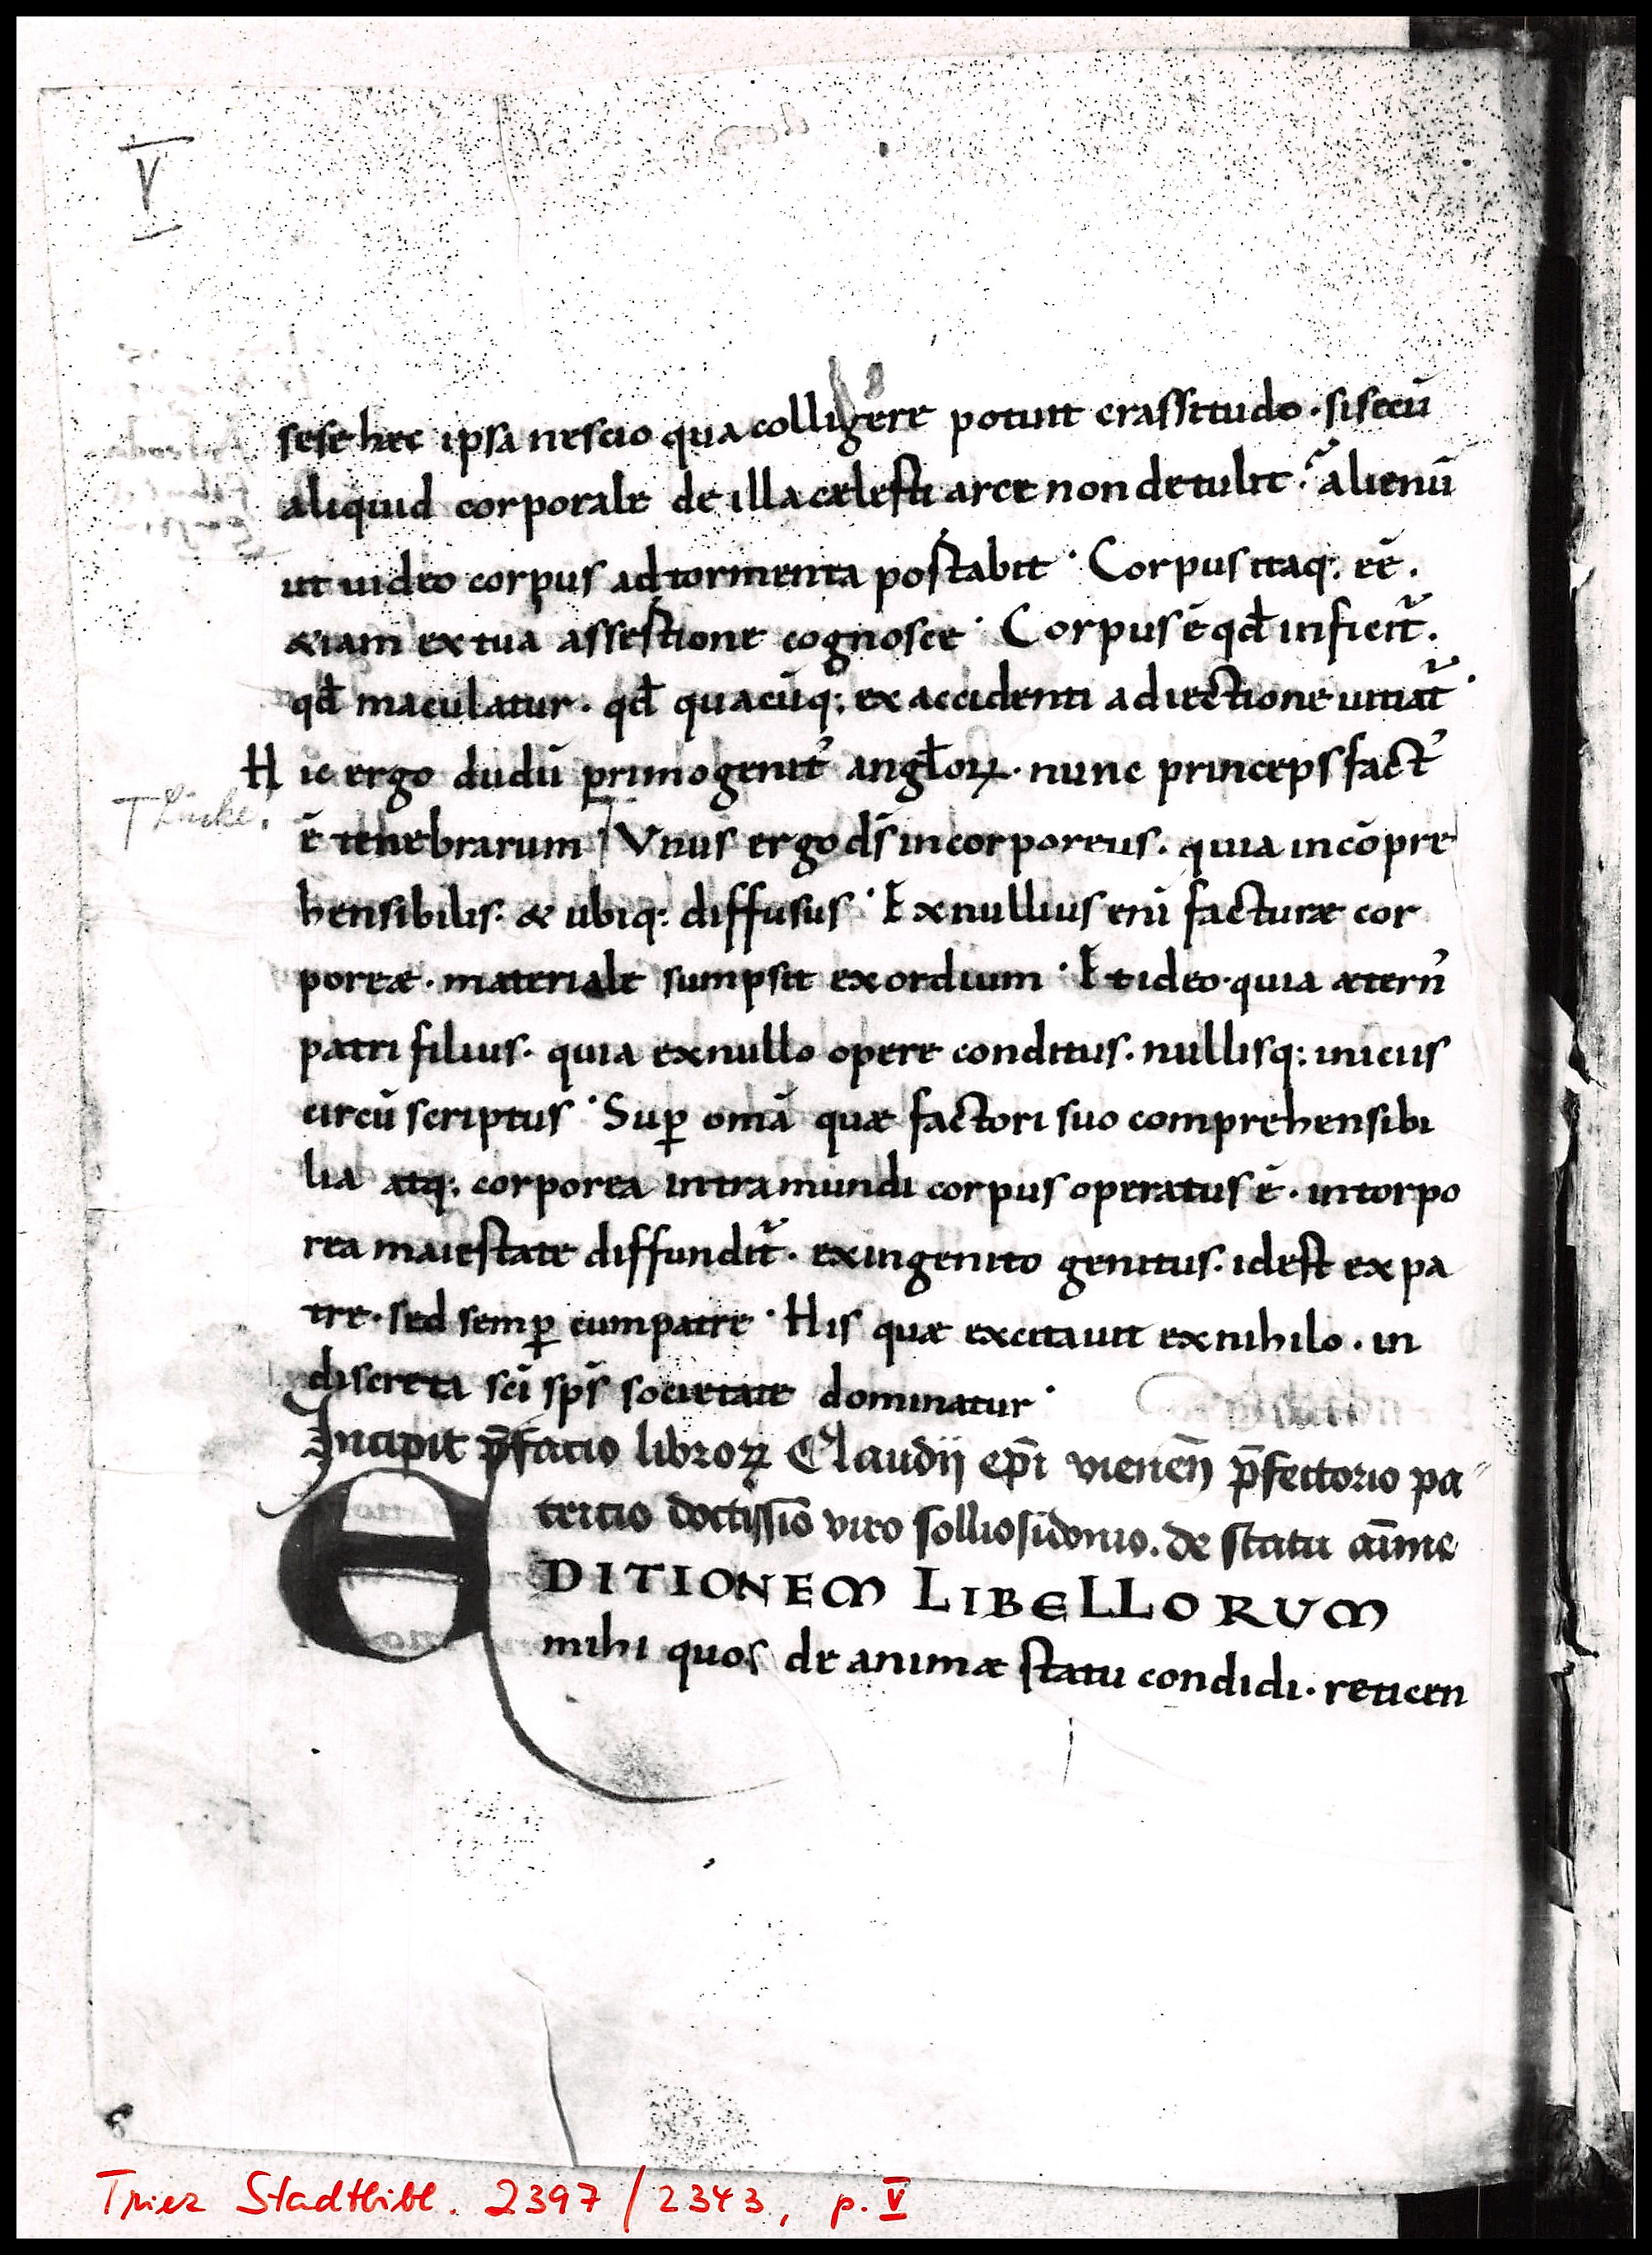 V
sese hec ipsa nescio qua colligere potuit crassitudo · si secū
aliquid corporale de illa cælesti arce non detulit · alienū
ut uideo corpus ad tormenta postabit · Corpus itaq; eē ·
&iam ex tua assestione cognosce · Corpus ē qđ inficit᷑ ·
qđ maculatur · qđ quacūq; ex accidenti adiectione uitiat᷑ ·
Hic ergo dudū primogenit᾽ angłoꝝ · nunc princeps fact᾽
T Lücke.
ē tenebrarum Vnus ergo ds̄ incorporeus · quia incōpre
hensibilis · & ubiq; diffusus · Ex nullius eni᷑ facturæ cor
poreæ · materiale sumpsit exordium · Et ideo · quia ætern᾽
patri filius · quia ex nullo opere conditus · nullisq; iniciis
circū scriptus · Sup̱ omā quæ factori suo comprehensibi
lia atq; corporea intra mundi corpus operatus ē · incorpo
rea maiestate diffundit᷑ · ex ingenito genitus · idest ex pa
tre · sed semꝑ cum patre · His quæ excitauit ex nihilo · in
discreta sc̄i sp̄s societate dominatur ·
Incipit p̄facio libroꝝ Claudij ep̄i vienen̄ p̄fectorio pa
tricio doctissīo viro sollio sidonio. de statu aīme
EDITIONEM LIBELLORUM
mihi quos de animæ statu condidi · reticen
8
Trier Stadtbibl. 2397/2343, p. V